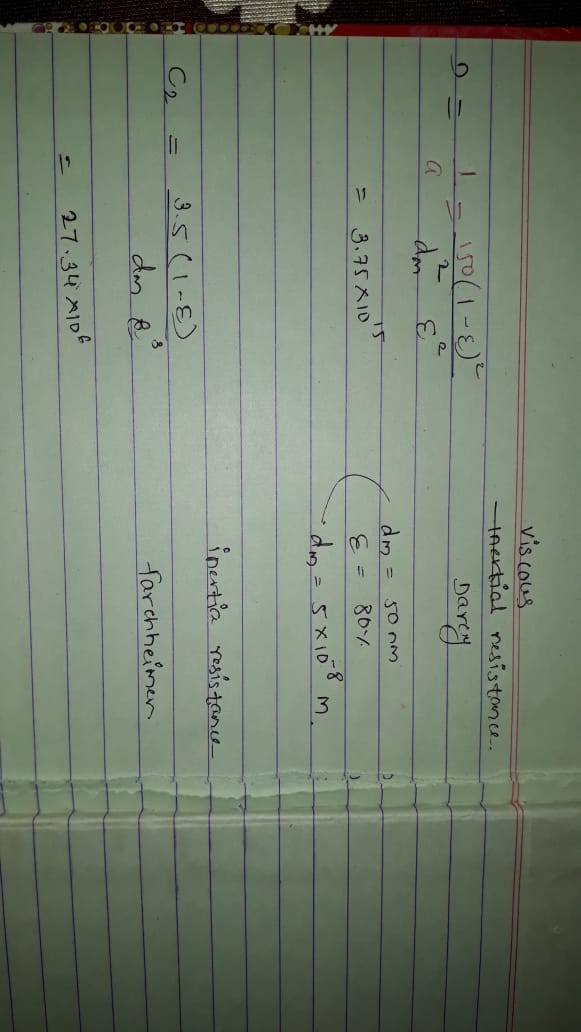 Viscous
Inertial resistance.
D = 1/a = 150(1-ε)²/dm² ε² Darcy
= 3.75×10¹⁵
dm = 50 nm ;
ε = 80% ;
dm = 5×10⁻⁸ m. ;
inertia resistance
C₂ = 3.5(1-ε)/dm ε³ farchheimer
= 27.34×10⁶